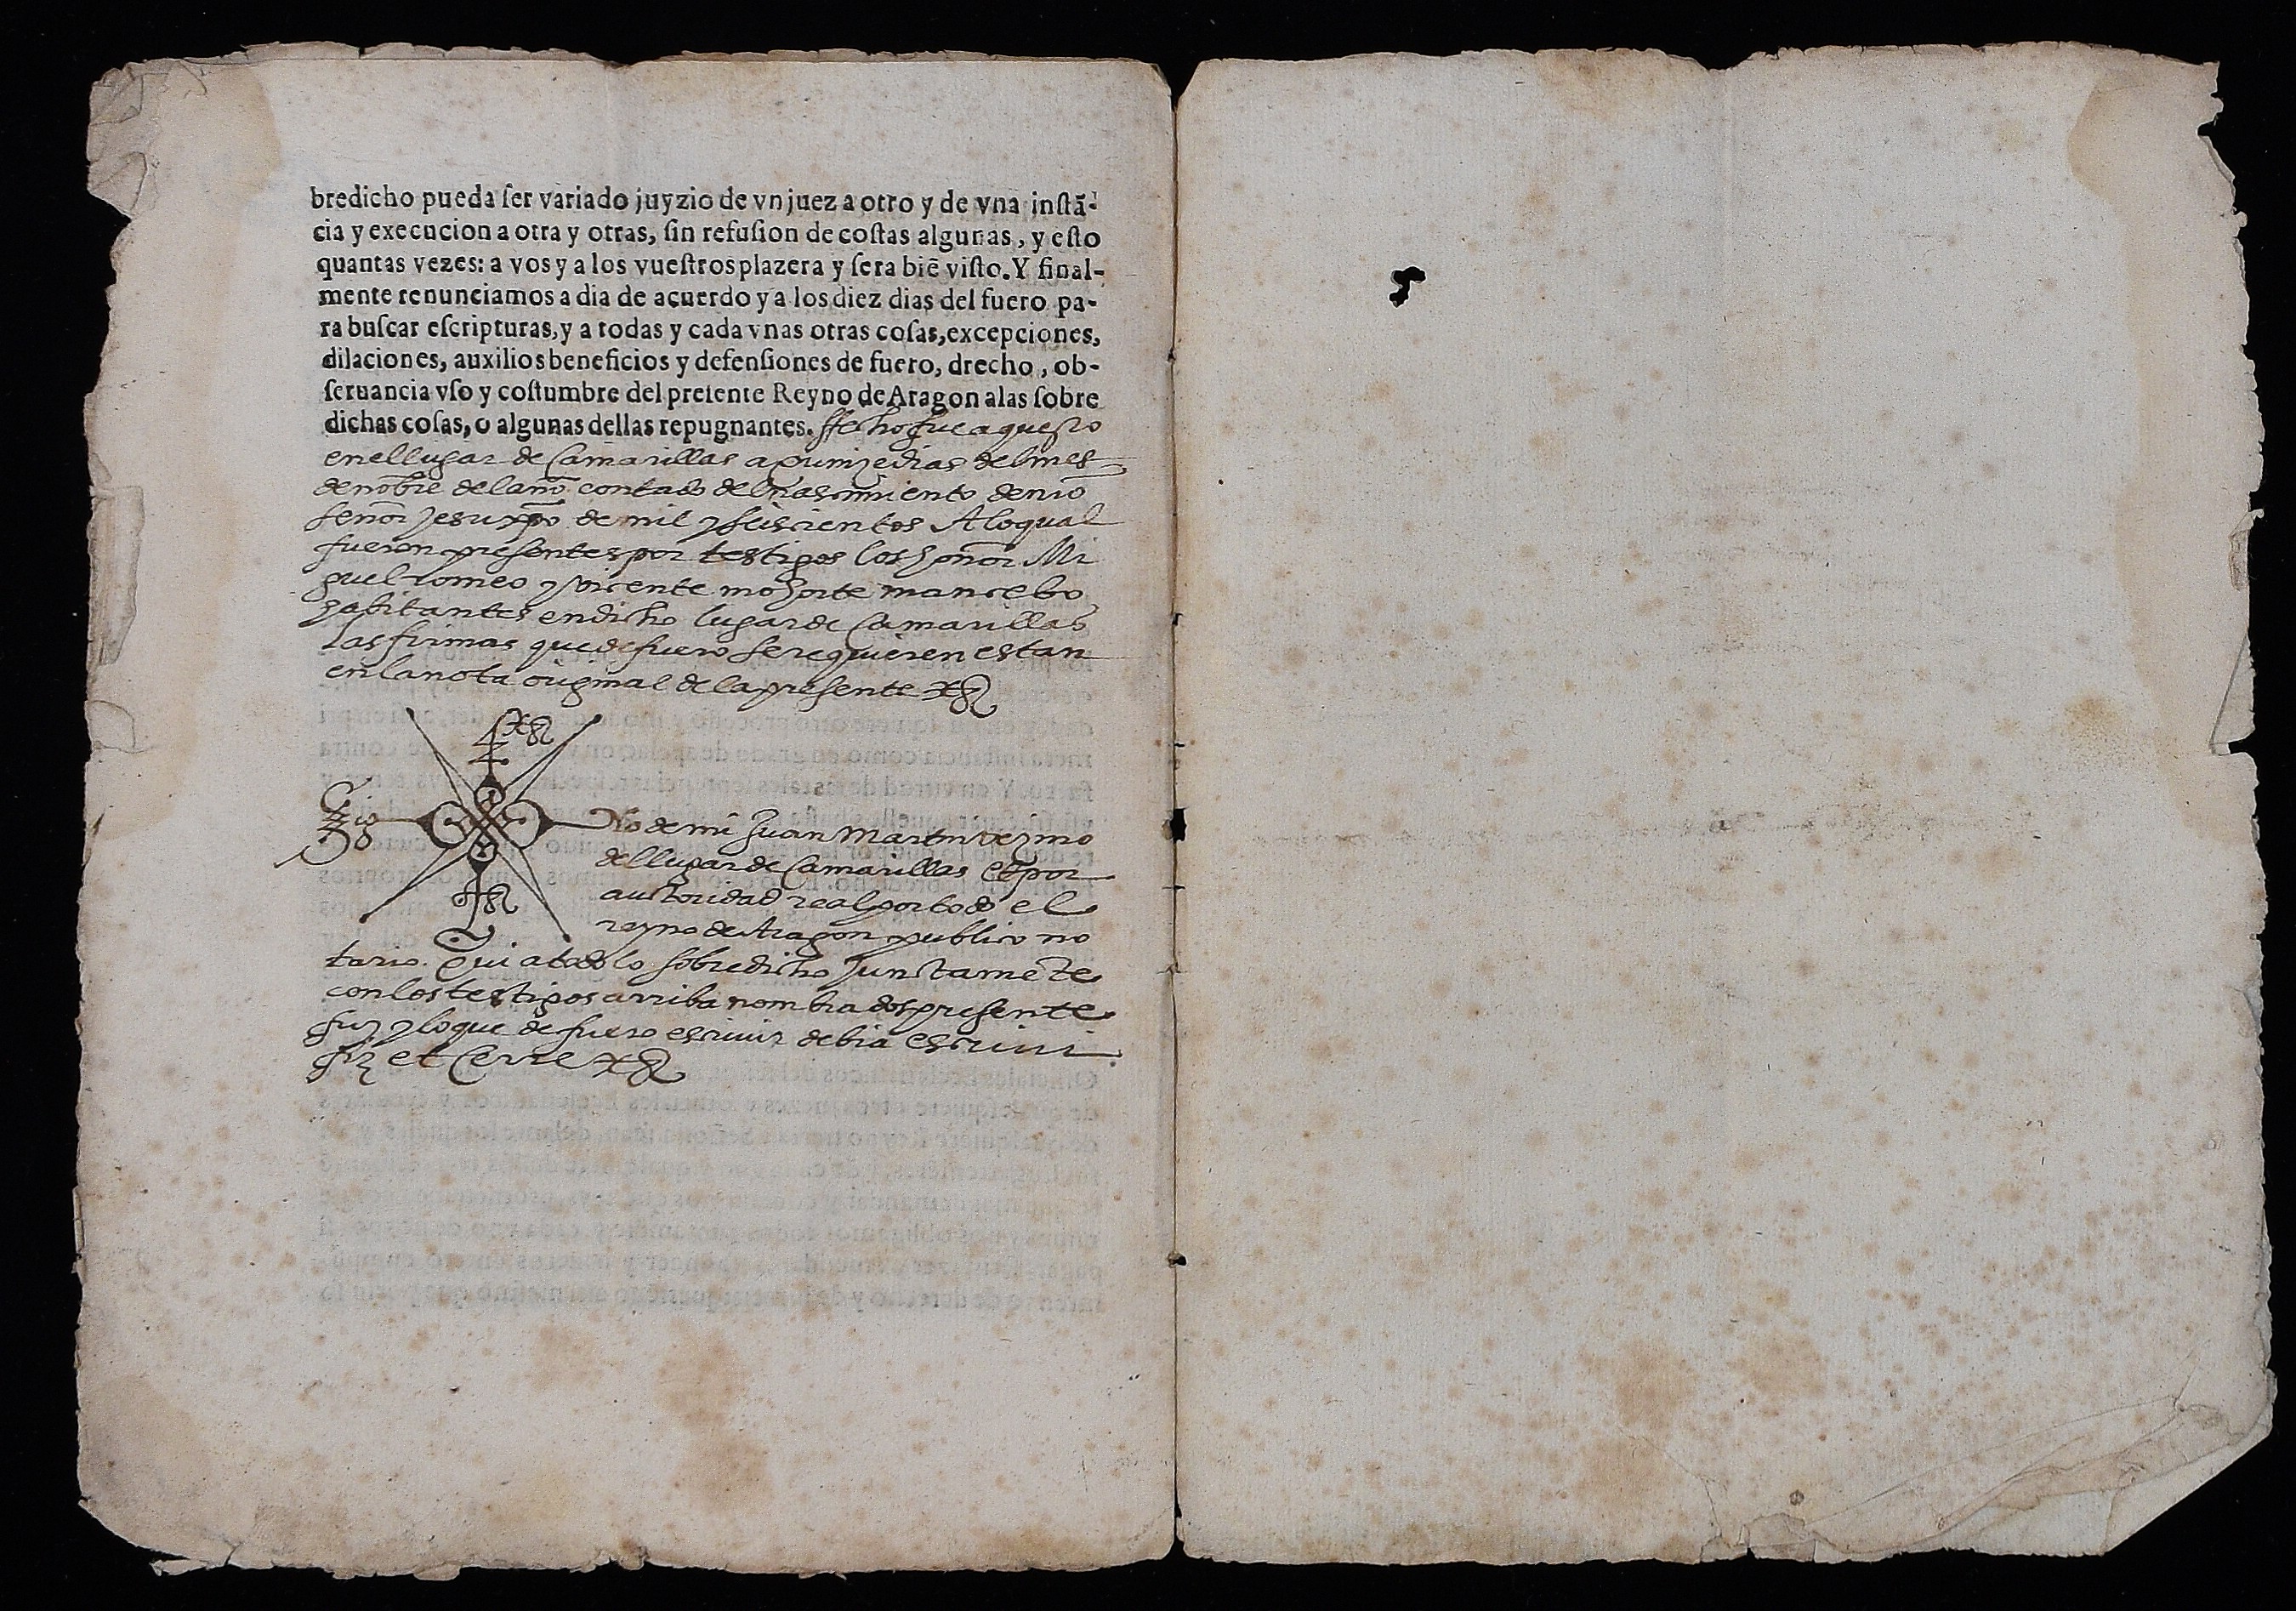 bredicho pueda ſer variado juyzio de vn juez a otro y de vna inſtã-
cia y execucion a otra y otras, ſin refuſion de coſtas algunas, y eſto
quantas vezes: a vos y a los vueſtros plazera y ſera biẽ viſto. Y final-
mente renunciamos a dia de acuerdo y a los diez dias del fuero pa-
ra buſcar eſcripturas, y a todas y cada vnas otras coſas, excepciones,
dilaciones, auxilios beneficios y defenſiones de fuero, drecho, ob-
ſeruancia vſo y coſtumbre del preſente Reyno de Aragon a las ſobre
dichas coſas, o algunas dellas repugnantes. ffecho fue aquesto
en el lugar de Camarillas a quinze dias del mes
de nobre del año contado del nascimiento de nro
señor Jesu xpo de mil y seiscientos A lo qual
fueron presentes por testigos los honor Mi
guel romeo y vicente monforte mancebo
habitantes en dicho lugar de Camarillas
las firmas que de fuero se requieren estan
en la nota original de la presente
Sig No de mi Juan Martin vezino
del lugar de Camarillas et por
auctoridad real por todo el
reyno de Aragon publico no
tario. Qui a todo lo sobredicho Junctamẽte
con los testigos arriba nombrados presente
fuy y lo que de fuero escriuir debia escriui
fiz et Cerre